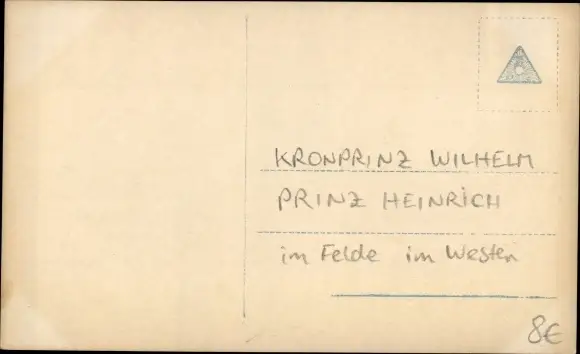 KRONPRINZ WILHELM
PRINZ HEINRICH
im Felde im Westen
8€